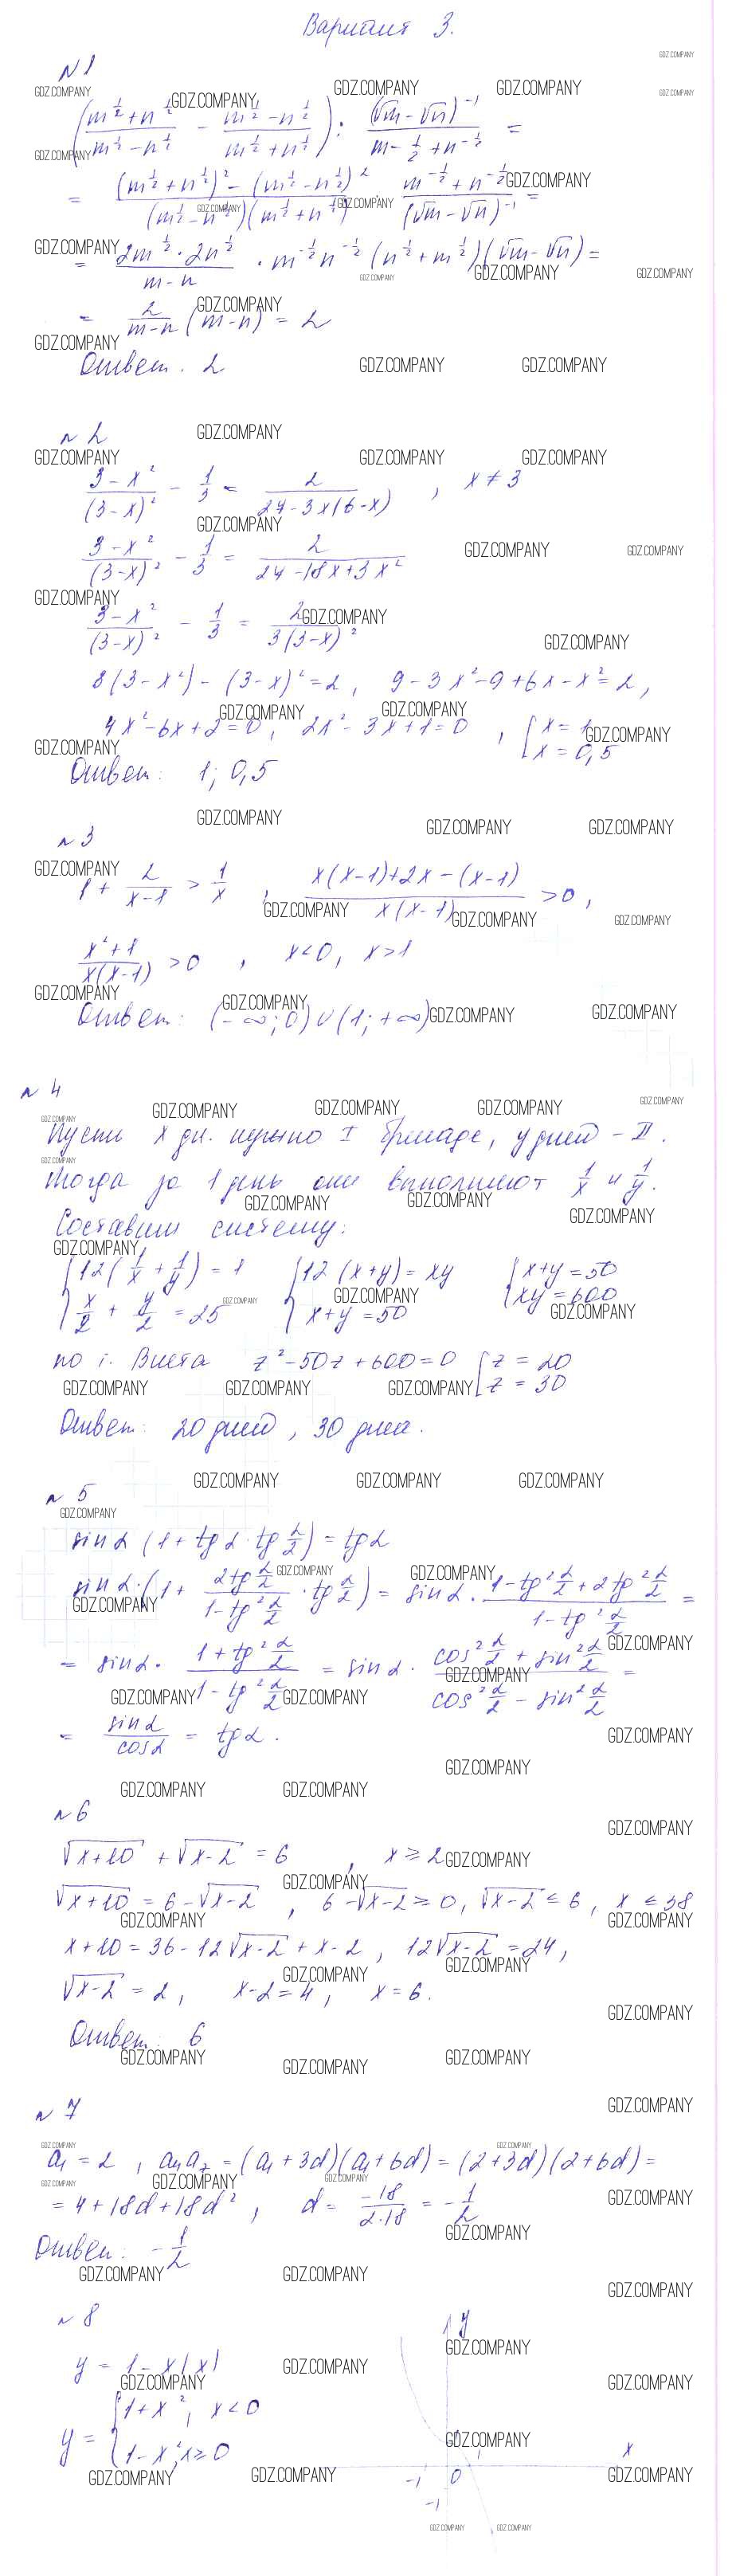 Вариант 3.
N1
(m^{1/2}+n^{1/2})/(m^{1/2}-n^{1/2}) - (m^{1/2}-n^{1/2})/(m^{1/2}+n^{1/2}) : (√m-√n)^{-1}/(m-^{1/2}+n^{-1/2}) =
= ((m^{1/2}+n^{1/2})²-(m^{1/2}-n^{1/2})²)/((m^{1/2}-n^{1/2})(m^{1/2}+n^{1/2})) · (m^{-1/2}+n^{-1/2})/(√m-√n)^{-1} =
= (2m^{1/2}·2n^{1/2})/(m-n) · m^{-1/2}n^{-1/2}(n^{1/2}+m^{1/2})(√m-√n)=
= 2/(m-n) (m-n) = 2
Ответ. 2
N2
(3-x²)/(3-x)² - 1/3 = 2/(27-3x(6-x)), x≠3
(3-x²)/(3-x)² - 1/3 = 2/(27-18x+3x²)
(3-x²)/(3-x)² - 1/3 = 2/(3(3-x)²)
3(3-x²)-(3-x)²=2, 9-3x²-9+6x-x²=2,
4x²-6x+2=0, 2x²-3x+1=0, [x=1 x=0,5
Ответ: 1; 0,5
N3
1+ 2/(x-1) > 1/x, (x(x-1)+2x-(x-1))/(x(x-1)) >0,
(x²+1)/(x(x-1)) >0, x<0, x>1
Ответ: (-∞;0)∪(1;+∞)
N4
Пусть x дн. нужно I бригаде, y дней - II.
Тогда за 1 день они выполняют 1/x и 1/y.
Составим систему:
{12(1/x+1/y)=1 {12(x+y)=xy {x+y=50
x/2+y/2=25 x+y=50 xy=600
по т. Виета z²-50z+600=0 [z=20 z=30
Ответ: 20 дней, 30 дней.
N5
sinα(1+tgα·tg α/2)=tgα
sinα·(1+ (2tg α/2)/(1-tg² α/2)·tg α/2)= sinα· (1-tg² α/2+2tg² α/2)/(1-tg² α/2) =
= sinα· (1+tg² α/2)/(1-tg² α/2) = sinα· (cos² α/2+sin² α/2)/(cos² α/2-sin² α/2) =
= sinα/cosα = tgα.
N6
√(x+10) + √(x-2) = 6, x≥2
√(x+10) = 6-√(x-2), 6-√(x-2)≥0, √(x-2)≤6, x≤38
x+10=36-12√(x-2)+x-2, 12√(x-2)=24,
√(x-2)=2, x-2=4, x=6.
Ответ: 6
N7
a₁=2, a₄a₇=(a₁+3d)(a₁+6d)=(2+3d)(2+6d)=
=4+18d+18d², d= -18/(2·18) = -1/2
Ответ: -1/2
N8
y
y=1-x|x|
y={1+x², x<0
1-x², x≥0
1
x
-1 0
-1
GDZ.COMPANY